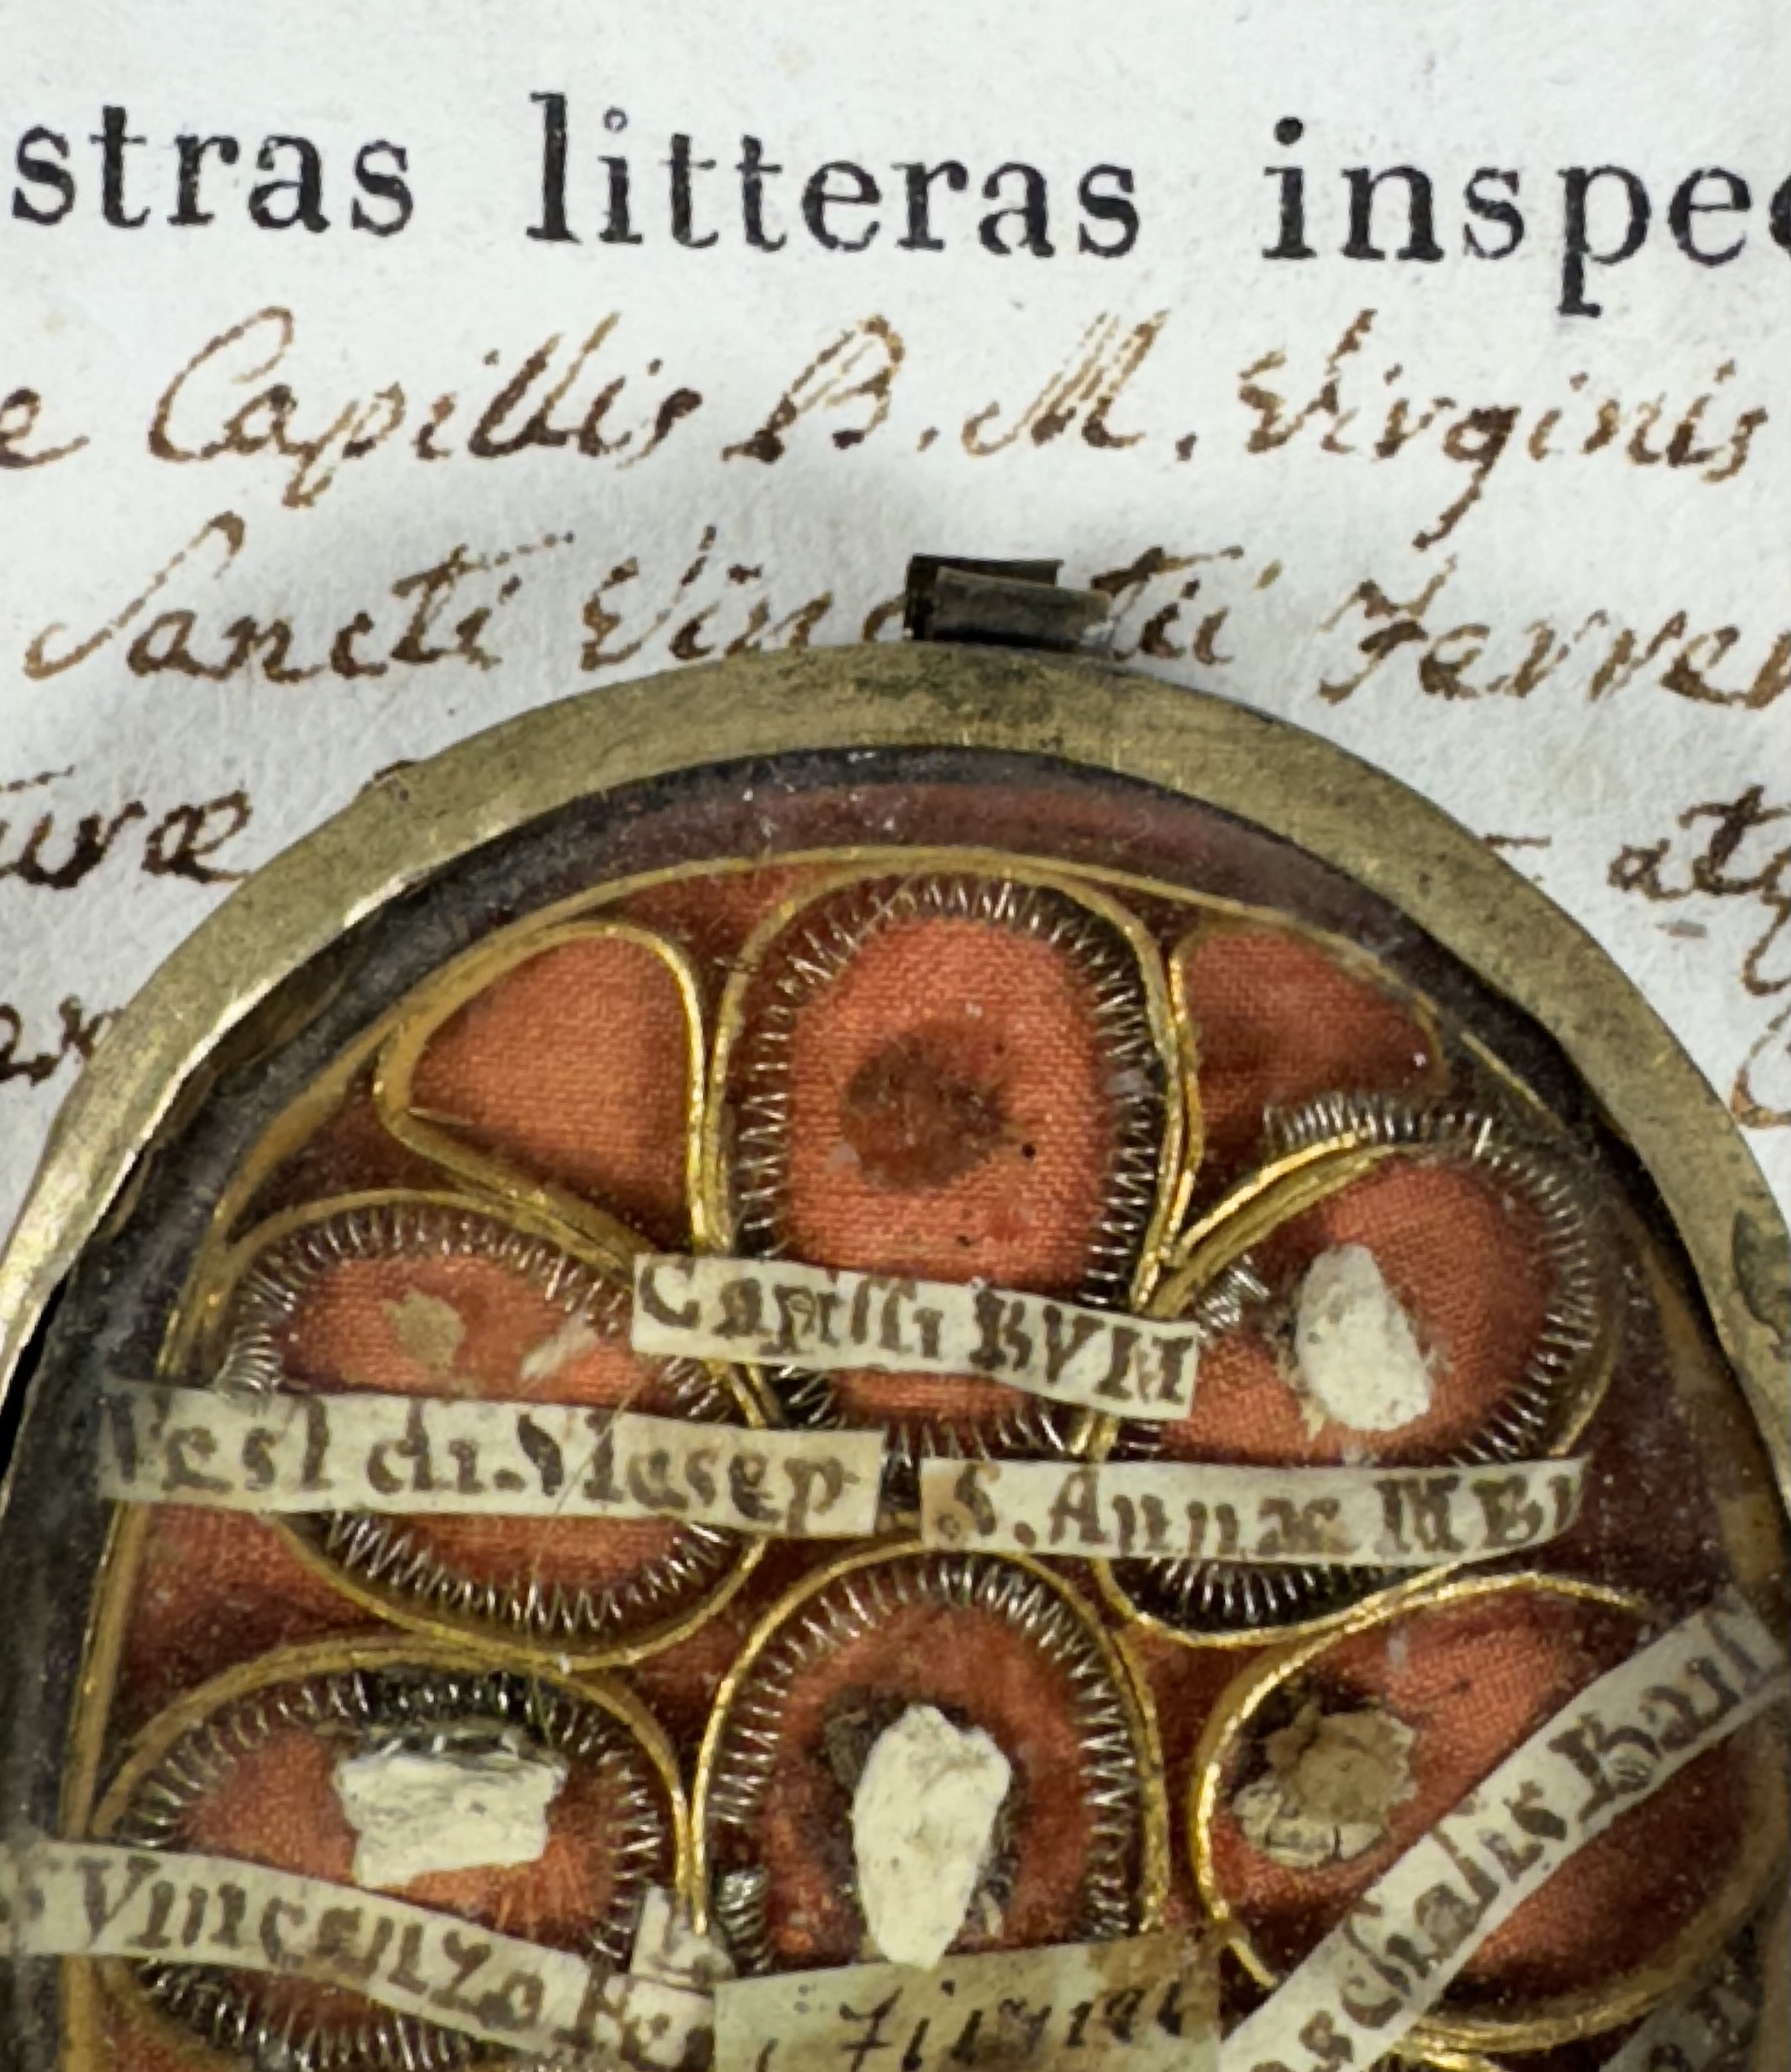 stras litteras inspec
e Capillis B. M. Virginis
Sancti Vin tii Ferrer
uræ atq
Capilli BVM
Vest di. S Iusep
S. Annæ MBV
S Vincenzo Fer
Firmi
aschalis Bail